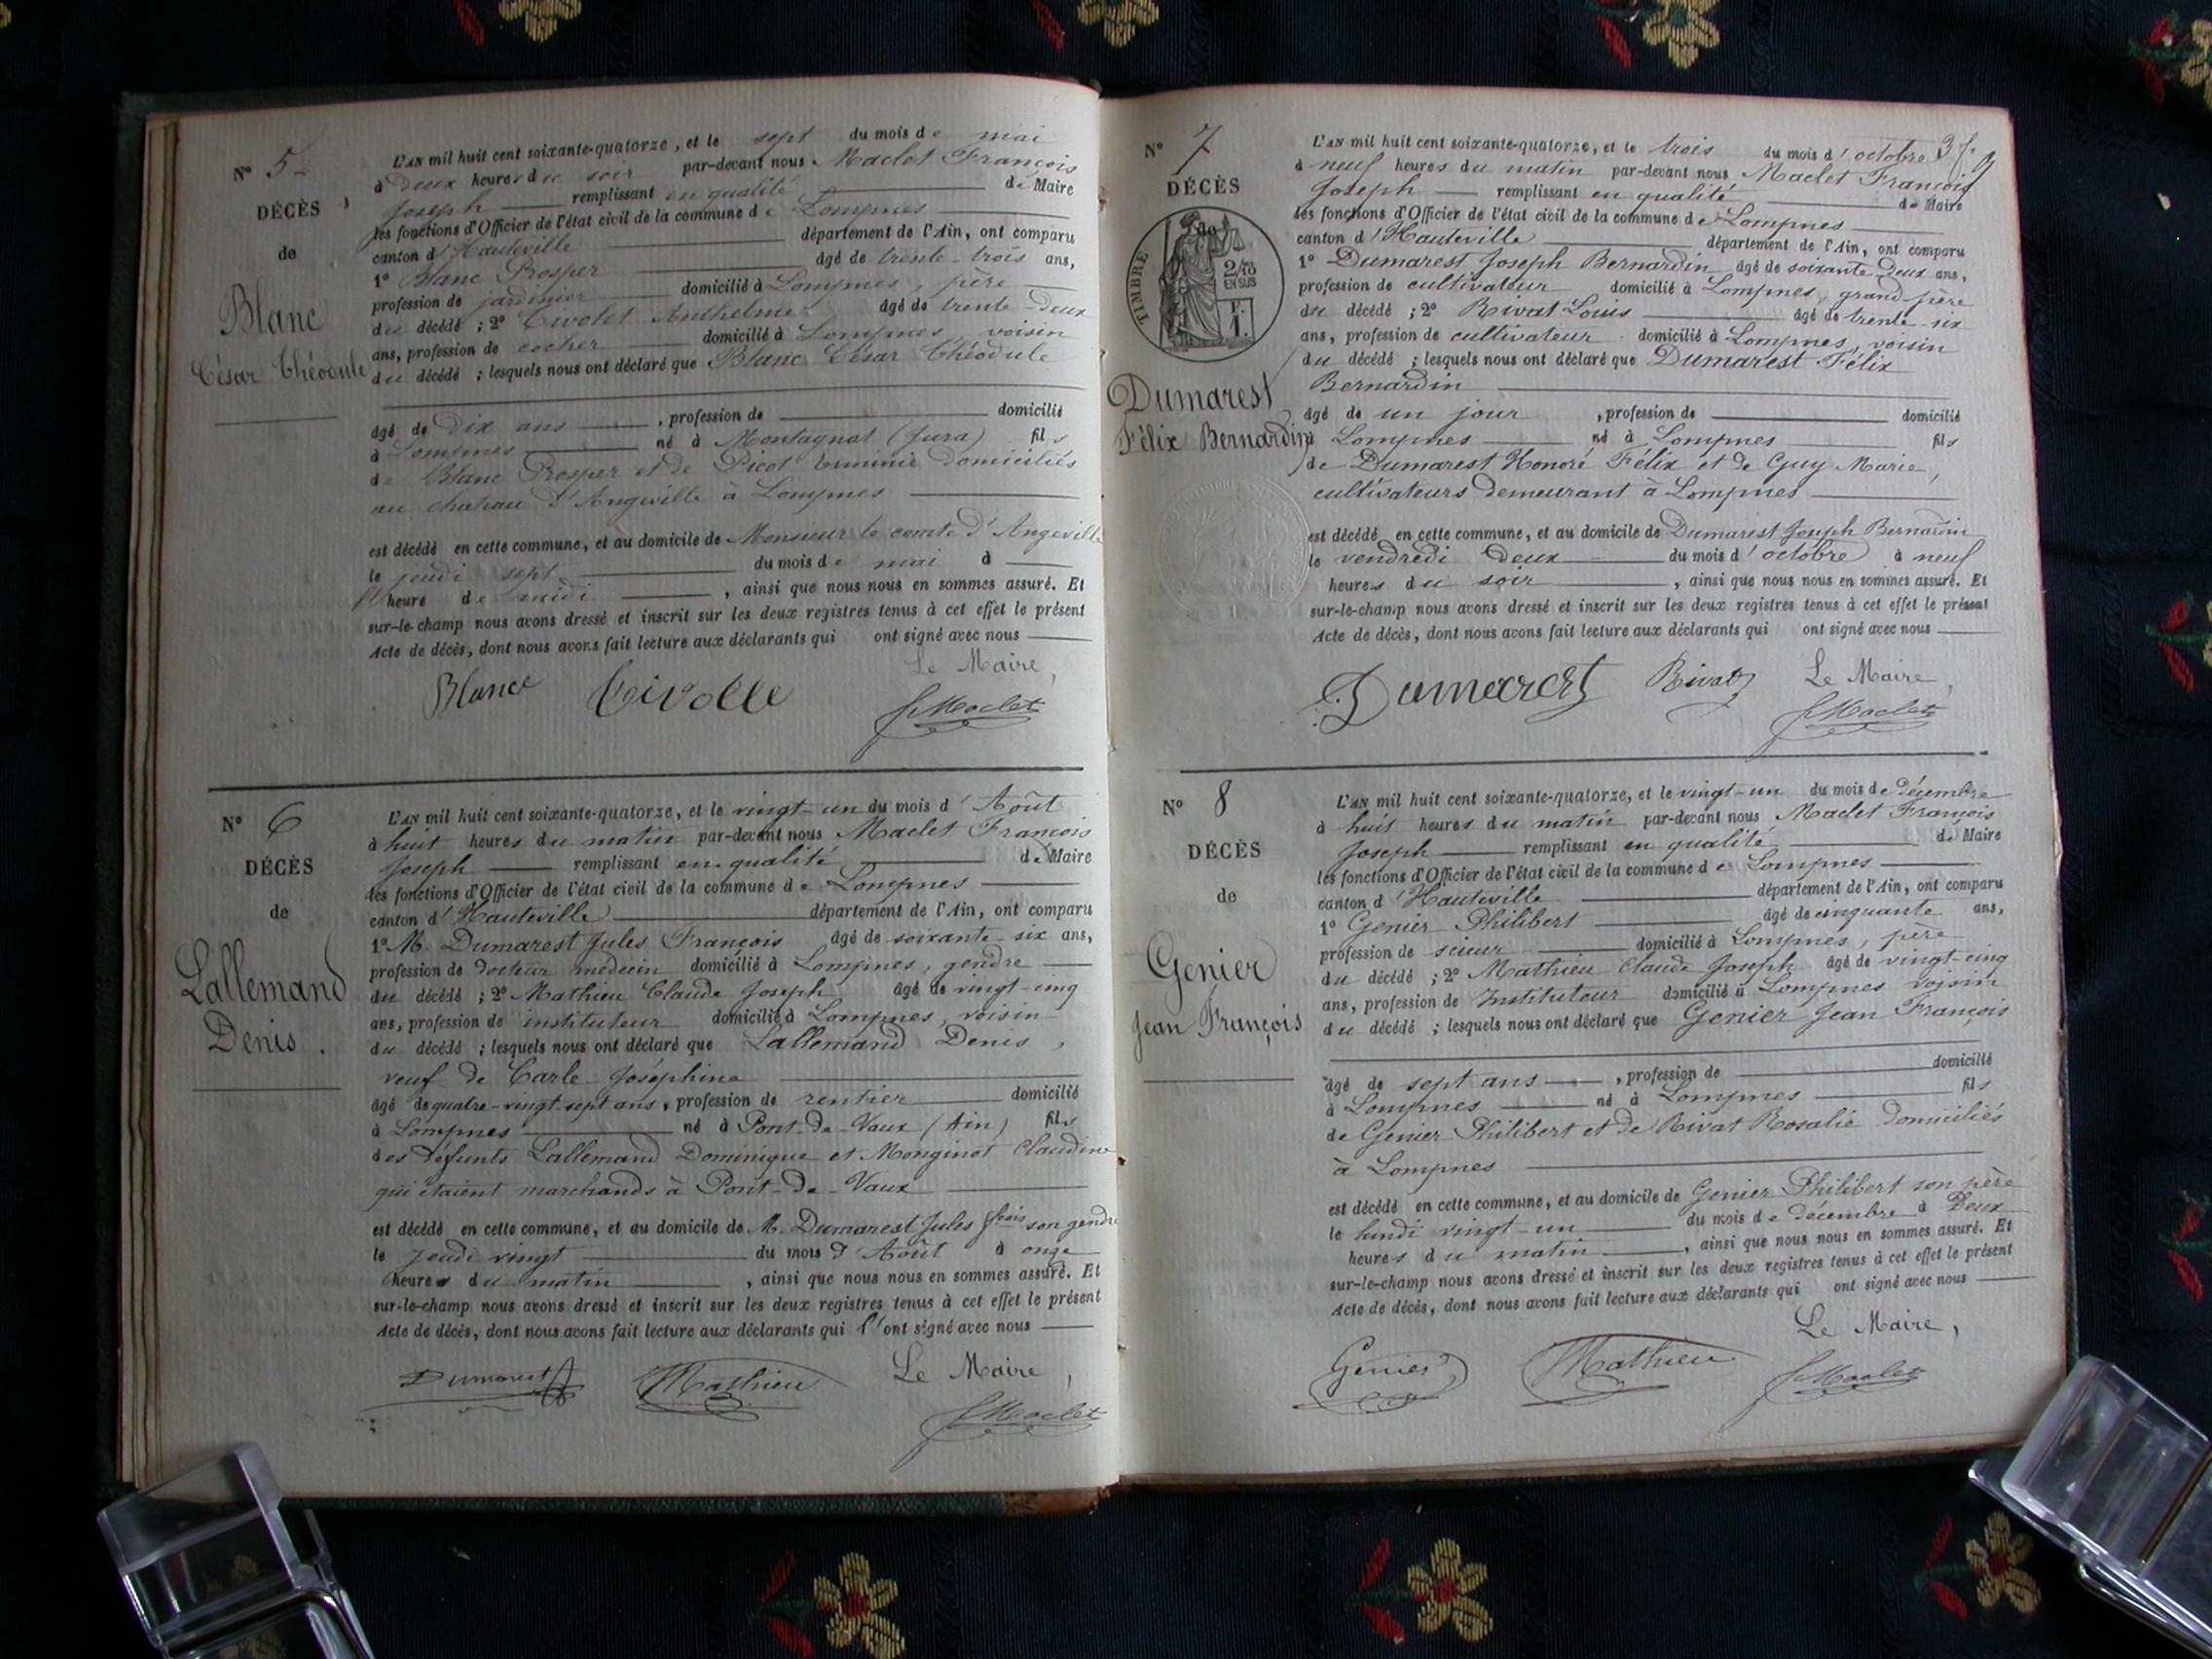 N° 5
DÉCÈS
de
Blanc
César Théodule
L'AN mil huit cent soixante-quatorze, et le sept du mois de mai
à deux heures du soir par-devant nous Maclet François
Joseph remplissant en qualité de Maire
les fonctions d'Officier de l'état civil de la commune de Lompnes
canton d'Hauteville département de l'Ain, ont comparu
1° Blanc Prosper âgé de trente-trois ans,
profession de jardinier domicilié à Lompnes, père
du décédé ; 2° Tivolet Anthelme âgé de trente-deux
ans, profession de cocher domicilié à Lompnes, voisin
du décédé ; lesquels nous ont déclaré que Blanc César Théodule
âgé de dix ans, profession de domicilié
à Lompnes né à Montagnat (Jura) fils
de Blanc Prosper et de Picot domiciliés
au chateau d'Angeville à Lompnes
est décédé en cette commune, et au domicile de Monsieur le comte d'Angeville
le jeudi sept du mois de mai à
heure de midi, ainsi que nous nous en sommes assuré. Et
sur-le-champ nous avons dressé et inscrit sur les deux registres tenus à cet effet le présent
Acte de décès, dont nous avons fait lecture aux déclarants qui ont signé avec nous
Le Maire,
Blanc Tivolle fMaclet
N° 6
DÉCÈS
de
Lallemand
Denis.
L'AN mil huit cent soixante-quatorze, et le vingt-un du mois d'Août
à huit heures du matin par-devant nous Maclet François
Joseph remplissant en qualité de Maire
les fonctions d'Officier de l'état civil de la commune de Lompnes
canton d'Hauteville département de l'Ain, ont comparu
1° M. Dumarest Jules François âgé de soixante-six ans,
profession de docteur médecin domicilié à Lompnes, gendre
du décédé ; 2° Mathieu Claude Joseph âgé de vingt-cinq
ans, profession de instituteur domicilié à Lompnes, voisin
du décédé ; lesquels nous ont déclaré que Lallemand Denis,
veuf de Carle Joséphine
âgé de quatre-vingt-sept ans, profession de rentier domicilié
à Lompnes né à Pont-de-Vaux (Ain) fils
des défunts Lallemand Dominique et Monginot Claudine
qui étaient marchands à Pont-de-Vaux
est décédé en cette commune, et au domicile de M. Dumarest Jules fçois son gendre
le jeudi vingt du mois d'Août à onze
heures du matin, ainsi que nous nous en sommes assuré. Et
sur-le-champ nous avons dressé et inscrit sur les deux registres tenus à cet effet le présent
Acte de décès, dont nous avons fait lecture aux déclarants qui l'ont signé avec nous
Le Maire,
Dumarest Mathieu fMaclet
N° 7
DÉCÈS
de
TIMBRE
2/10
EN SUS
F.
1.
Dumarest
Félix Bernardin
L'AN mil huit cent soixante-quatorze, et le trois du mois d'octobre
à neuf heures du matin par-devant nous Maclet François
Joseph remplissant en qualité de Maire
les fonctions d'Officier de l'état civil de la commune de Lompnes
canton d'Hauteville département de l'Ain, ont comparu
1° Dumarest Joseph Bernardin âgé de soixante-deux ans,
profession de cultivateur domicilié à Lompnes, grand père
du décédé ; 2° Rivat Louis âgé de trente-six
ans, profession de cultivateur domicilié à Lompnes, voisin
du décédé ; lesquels nous ont déclaré que Dumarest Félix
Bernardin
âgé de un jour, profession de domicilié
à Lompnes né à Lompnes fils
de Dumarest Honoré Félix et de Guy Marie,
cultivateurs demeurant à Lompnes
est décédé en cette commune, et au domicile de Dumarest Joseph Bernardin
le vendredi deux du mois d'octobre à neuf
heures du soir, ainsi que nous nous en sommes assuré. Et
sur-le-champ nous avons dressé et inscrit sur les deux registres tenus à cet effet le présent
Acte de décès, dont nous avons fait lecture aux déclarants qui ont signé avec nous
Dumarest Rivat Le Maire,
fMaclet
N° 8
DÉCÈS
de
Genier
Jean François
L'AN mil huit cent soixante-quatorze, et le vingt-un du mois de décembre
à huit heures du matin par-devant nous Maclet François
Joseph remplissant en qualité de Maire
les fonctions d'Officier de l'état civil de la commune de Lompnes
canton d'Hauteville département de l'Ain, ont comparu
1° Genier Philibert âgé de cinquante ans,
profession de scieur domicilié à Lompnes, père
du décédé ; 2° Mathieu Claude Joseph âgé de vingt-cinq
ans, profession de Instituteur domicilié à Lompnes voisin
du décédé ; lesquels nous ont déclaré que Genier Jean François
âgé de sept ans, profession de domicilié
à Lompnes né à Lompnes fils
de Genier Philibert et de Rivat Rosalie domiciliés
à Lompnes
est décédé en cette commune, et au domicile de Genier Philibert son père
le lundi vingt-un du mois de décembre à deux
heures du matin, ainsi que nous nous en sommes assuré. Et
sur-le-champ nous avons dressé et inscrit sur les deux registres tenus à cet effet le présent
Acte de décès, dont nous avons fait lecture aux déclarants qui ont signé avec nous
Le Maire,
Genier Mathieu fMaclet